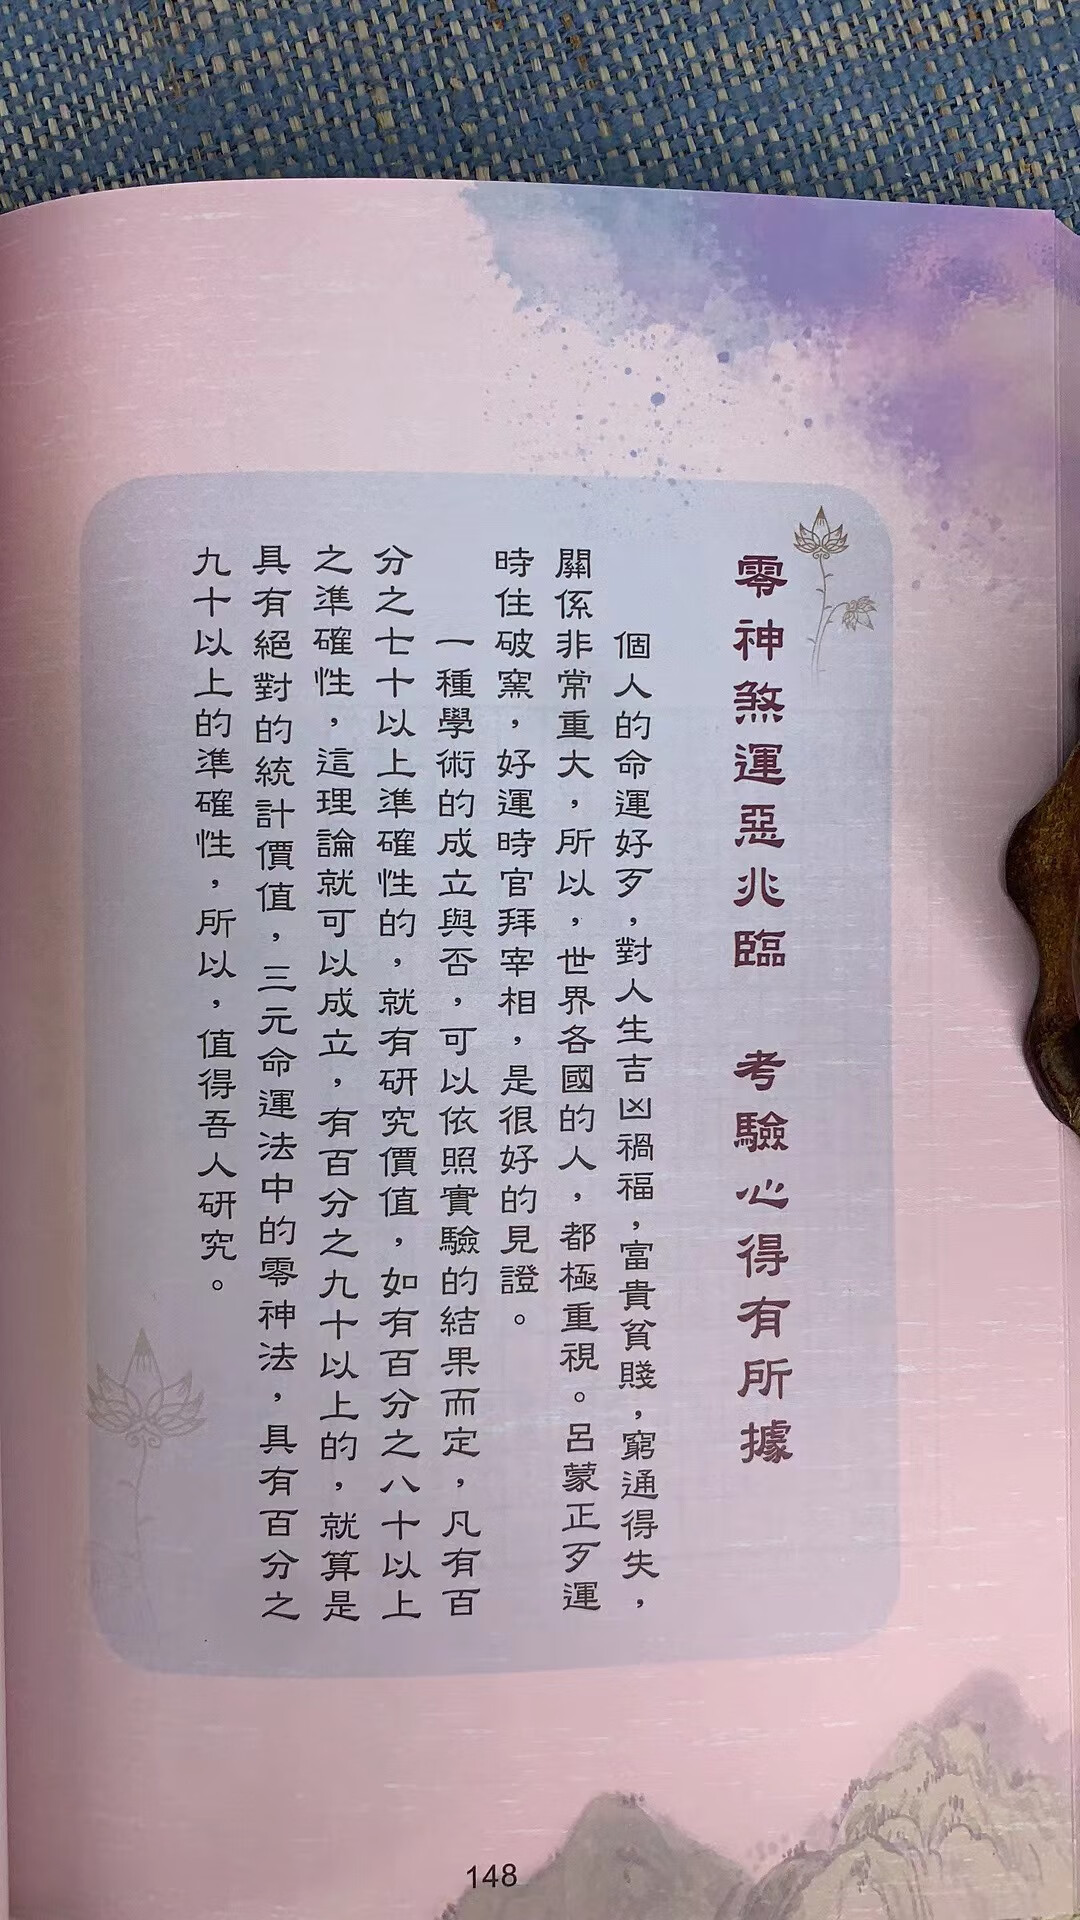 零神煞運惡兆臨　考驗心得有所據
個人的命運好歹，對人生吉凶禍福，富貴貧賤，窮通得失，
關係非常重大，所以，世界各國的人，都極重視。呂蒙正歹運
時住破窯，好運時官拜宰相，是很好的見證。
一種學術的成立與否，可以依照實驗的結果而定，凡有百
分之七十以上準確性的，就有研究價值，如有百分之八十以上
之準確性，這理論就可以成立，有百分之九十以上的，就算是
具有絕對的統計價值，三元命運法中的零神法，具有百分之
九十以上的準確性，所以，值得吾人研究。
148